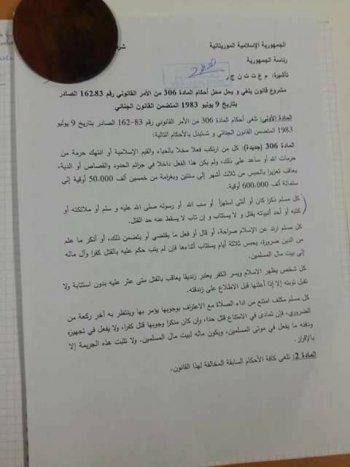 الجمهورية الإسلامية الموريتانية
رئاسة الجمهورية
تأشيرة: م ع ت ت ن ج ر
مشروع قانون يلغي و يحل محل أحكام المادة 306 من الأمر القانوني رقم 162.83 الصادر
بتاريخ 9 يوليو 1983 المتضمن القانون الجنائي
المادة الأولى: تلغى أحكام المادة 306 من الأمر القانوني رقم 83-162 الصادر بتاريخ 9 يوليو
1983 المتضمن القانون الجنائي و تستبدل بالأحكام التالية:
المادة 306 (جديدة): كل من ارتكب فعلا مخلا بالحياء والقيم الإسلامية أو انتهك حرمة من
حرمات الله أو ساعد على ذلك، ولم يكن هذا الفعل داخلا في جرائم الحدود والقصاص أو الدية،
يعاقب تعزيرا بالحبس من ثلاث أشهر إلى سنتين وبغرامة من خمسين ألف 50.000 أوقية إلى
ستمائة ألف 600.000 أوقية.
كل مسلم ذكرا كان أو أنثى استهزأ أو سب الله أو رسوله صلى الله عليه و سلم أو ملائكته أو
كتبه أو أحد أنبيائه يقتل و لا يستتاب و إن تاب لا يسقط عنه حد القتل.
كل مسلم ارتد عن الإسلام صراحة، أو قال أو فعل ما يقتضي أو يتضمن ذلك، أو أنكر ما علم
من الدين ضرورة، يحبس ثلاثة أيام يستتاب أثناءها فإن لم يتب حكم عليه بالقتل كفرا وآل ماله
إلى بيت مال المسلمين.
كل شخص يظهر الإسلام ويسر الكفر يعتبر زنديقا يعاقب بالقتل متى عثر عليه بدون استتابة ولا
تقبل توبته إلا إذا أعلنها قبل الاطلاع على زندقته.
كل مسلم مكلف امتنع من أداء الصلاة مع الاعتراف بوجوبها يؤمر بها وينتظر به آخر ركعة من
الضروري، فإن تمادى في الامتناع قتل حدا، وإن كان منكرا وجوبها قتل كفرا، ولا يفعل في تجهيزه
ودفنه ما يفعل في موتى المسلمين، ويكون ماله لبيت مال المسلمين. ولا تثبت هذه الجريمة إلا
بالإقرار.
المادة 2: تلغى كافة الأحكام السابقة المخالفة لهذا القانون.